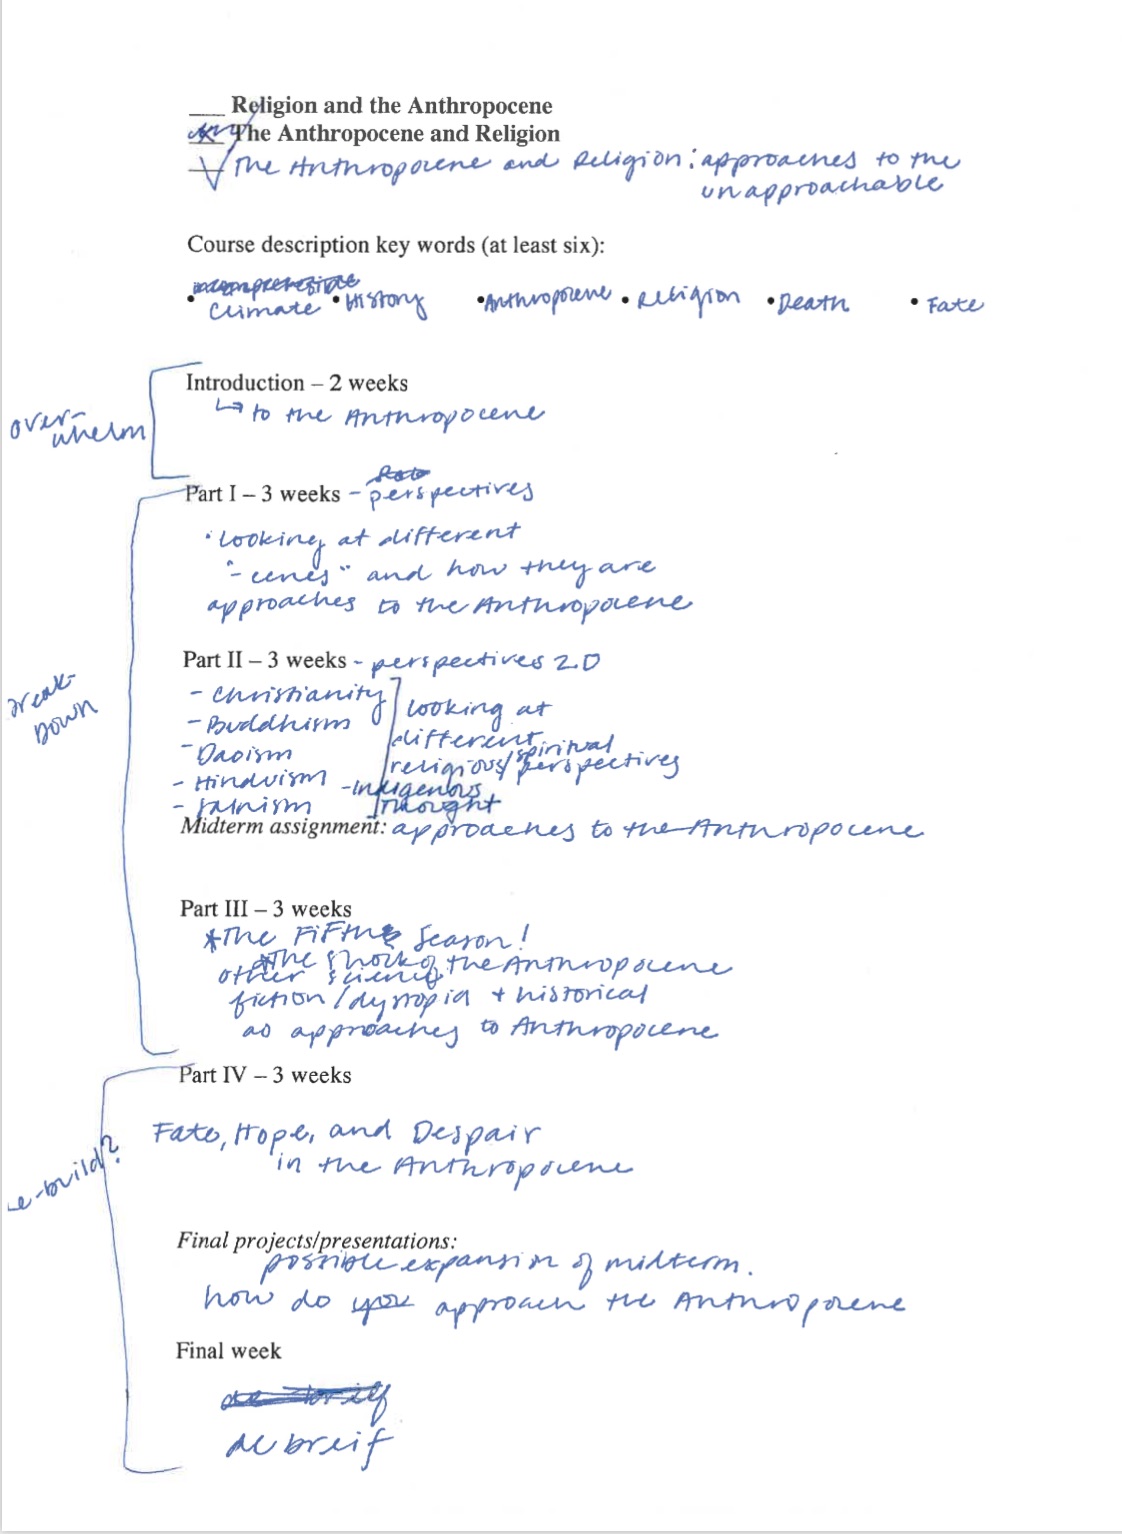 ___ Religion and the Anthropocene
___ The Anthropocene and Religion
The Anthropocene and Religion: approaches to the
unapproachable
Course description key words (at least six):
incomprehensible
• Climate • History • Anthropocene • Religion • Death • Fate
Introduction – 2 weeks
↳ to the Anthropocene
over-
whelm
Part I – 3 weeks - perspectives
• looking at different
"-cenes" and how they are
approaches to the Anthropocene
Part II – 3 weeks - perspectives 2.0
- Christianity
- Buddhism
- Daoism
- Hinduism
- Jainism
- Indigenous
thought
looking at
different
religious/spiritual
perspectives
break-
down
Midterm assignment: approaches to the Anthropocene
Part III – 3 weeks
*The Fifth Season!
*The Shock of the Anthropocene
other science
fiction/dystopia + historical
as approaches to Anthropocene
Part IV – 3 weeks
Fate, Hope, and Despair
in the Anthropocene
e-build?
Final projects/presentations:
possible expansion of midterm.
how do you approach the Anthropocene
Final week
debreif